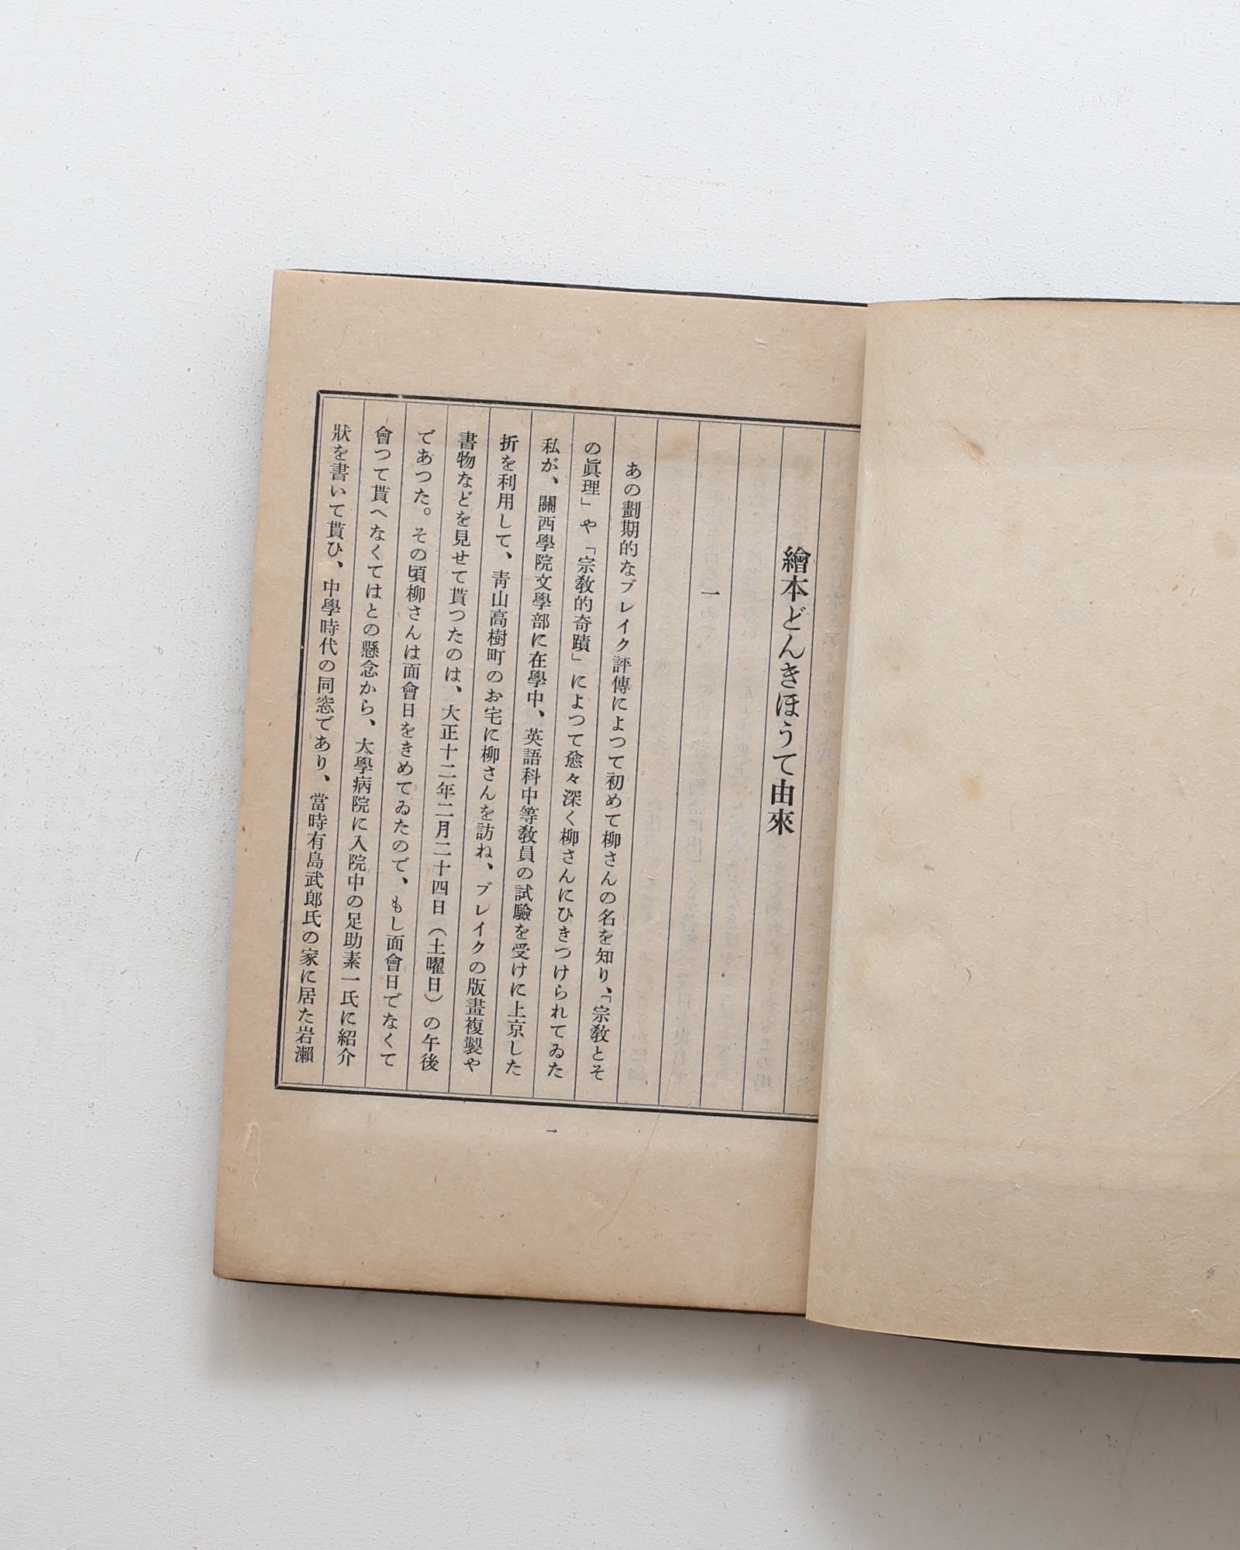 繪本どんきほうて由來
一
あの劃期的なブレイク評傳によつて初めて柳さんの名を知り、「宗敎とそ
の眞理」や「宗敎的奇蹟」によつて愈々深く柳さんにひきつけられてゐた
私が、關西學院文學部に在學中、英語科中等敎員の試驗を受けに上京した
折を利用して、靑山高樹町のお宅に柳さんを訪ね、ブレイクの版畫複製や
書物などを見せて貰つたのは、大正十二年二月二十四日（土曜日）の午後
であつた。その頃柳さんは面會日をきめてゐたので、もし面會日でなくて
會つて貰へなくてはとの懸念から、大學病院に入院中の足助素一氏に紹介
狀を書いて貰ひ、中學時代の同窓であり、當時有島武郎氏の家に居た岩瀨
一